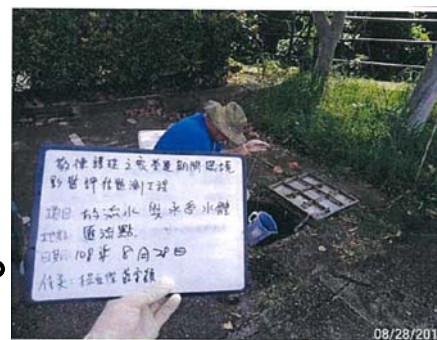 護理之家營運期間環境
影響評估監測工程
項目: 放流水與承受水體
地點: 匯流點
日期: 108年8月28日
作業:
08/28/201